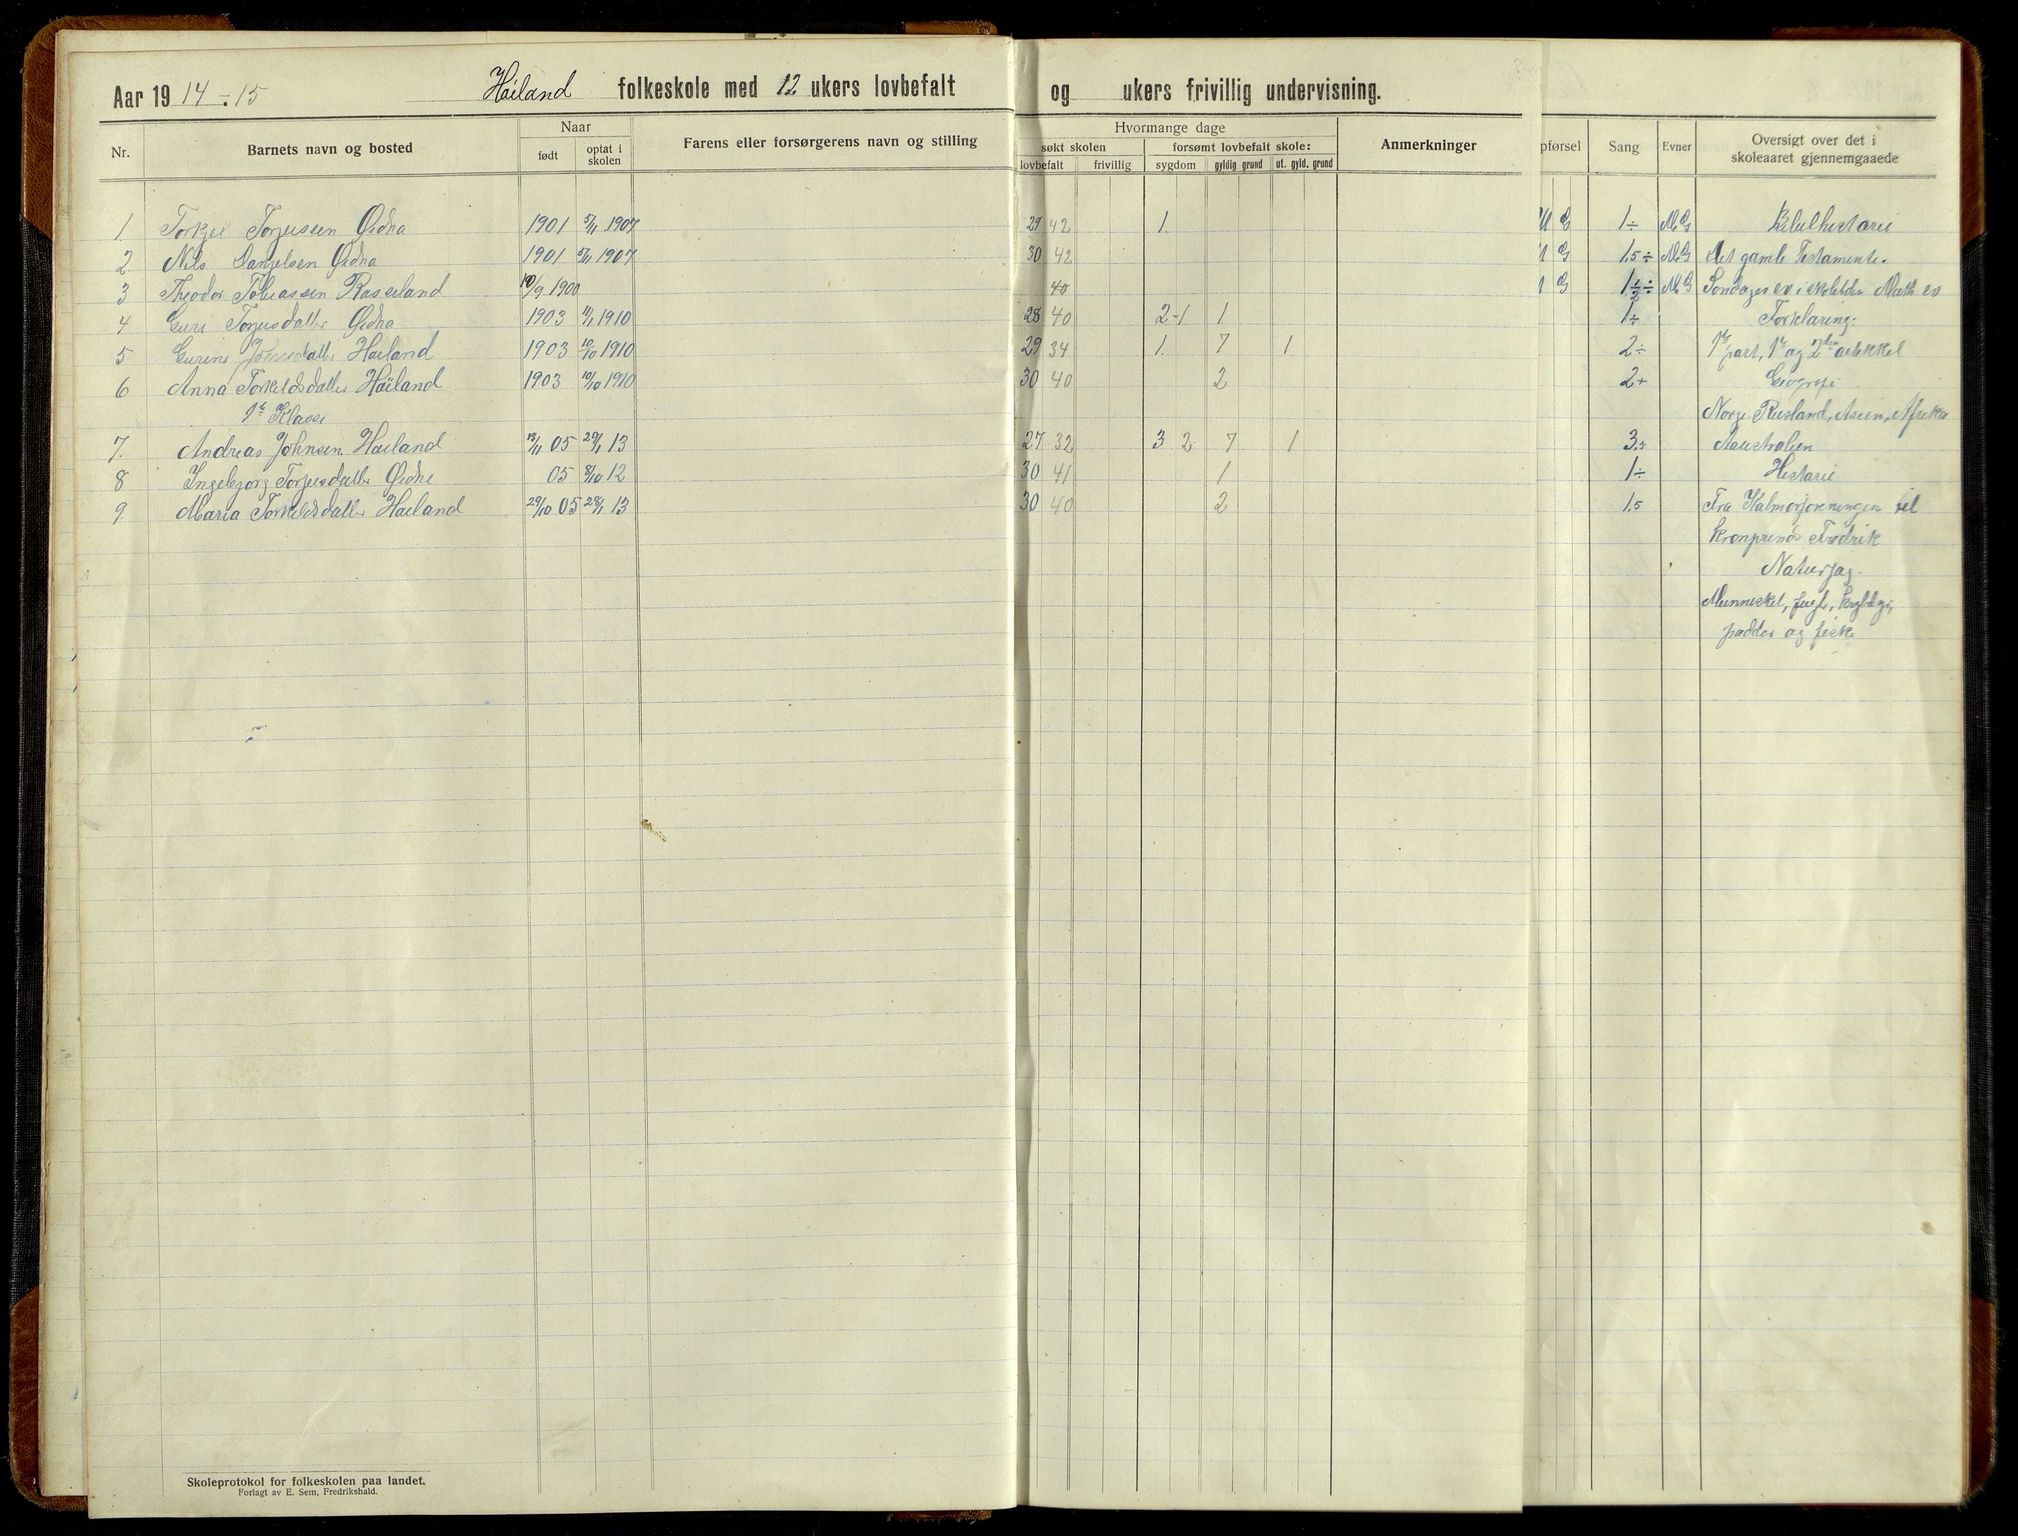 Aar 19 14 ÷ 15 Hailand folkeskole med 12 ukers lovbefalt og ukers frivillig undervisning.
Nr. Barnets navn og bosted Naar født optat i skolen Farens eller forsørgerens navn og stilling Hvormange dage søkt skolen lovbefalt frivillig forsømt lovbefalt skole: sygdom gyldig grund ut. gyld. grund Anmerkninger pførsel Sang Evner Oversigt over det i skoleaaret gjennemgaaede
1. Torkjel Torjussen Øidna 1901 5/11 1907 29 42 1. G 1÷ M.G Bibelhistorie
2. Nils Danjelsen Øidna 1901 5/11 1907 30 42 G 1.5÷ M.G Det gamle Testamente.
3 Theodor Tobiassen Rosseland 10/9 1900 40 G 1 1/2 ÷ M.G Søndags ev i skoletiden Math ev
4 Guri Torjusdatter Øidna 1903 11/1 1910 28 40 2-1 1 1÷ Forklaring.
5 Gurine Johnsdatter Hailand 1903 10/10 1910 29 34 1. 7 1 2÷ 1ste part, 1ste og 2den artikkel
6 Anna Torkeldsdatter Haïland 1903 10/10 1910 30 40 2 2+ Geografi
1ste Klasse Norge Rusland, Asien, Afrika
7. Andreas Johnsen Hailand 13/11 05 29/1 13 27 32 3 2. 7 1 3.5 Aaustralien
8 Ingebjorg Torjusdatter Øidne 05 8/10 12 30 41 1 1÷ Historie
9. Maria Torkeldsdatter Hailand 29/10 05 28/1 13 30 40 2 1.5 Fra Kalmarforeningen til
kronprinds Fredrik
Naturfag.
Mennesket, fugle, krybdyr,
padder og fiske
Skoleprotokol for folkeskolen paa landet.
Forlagt av E. Sem, Fredrikshald.